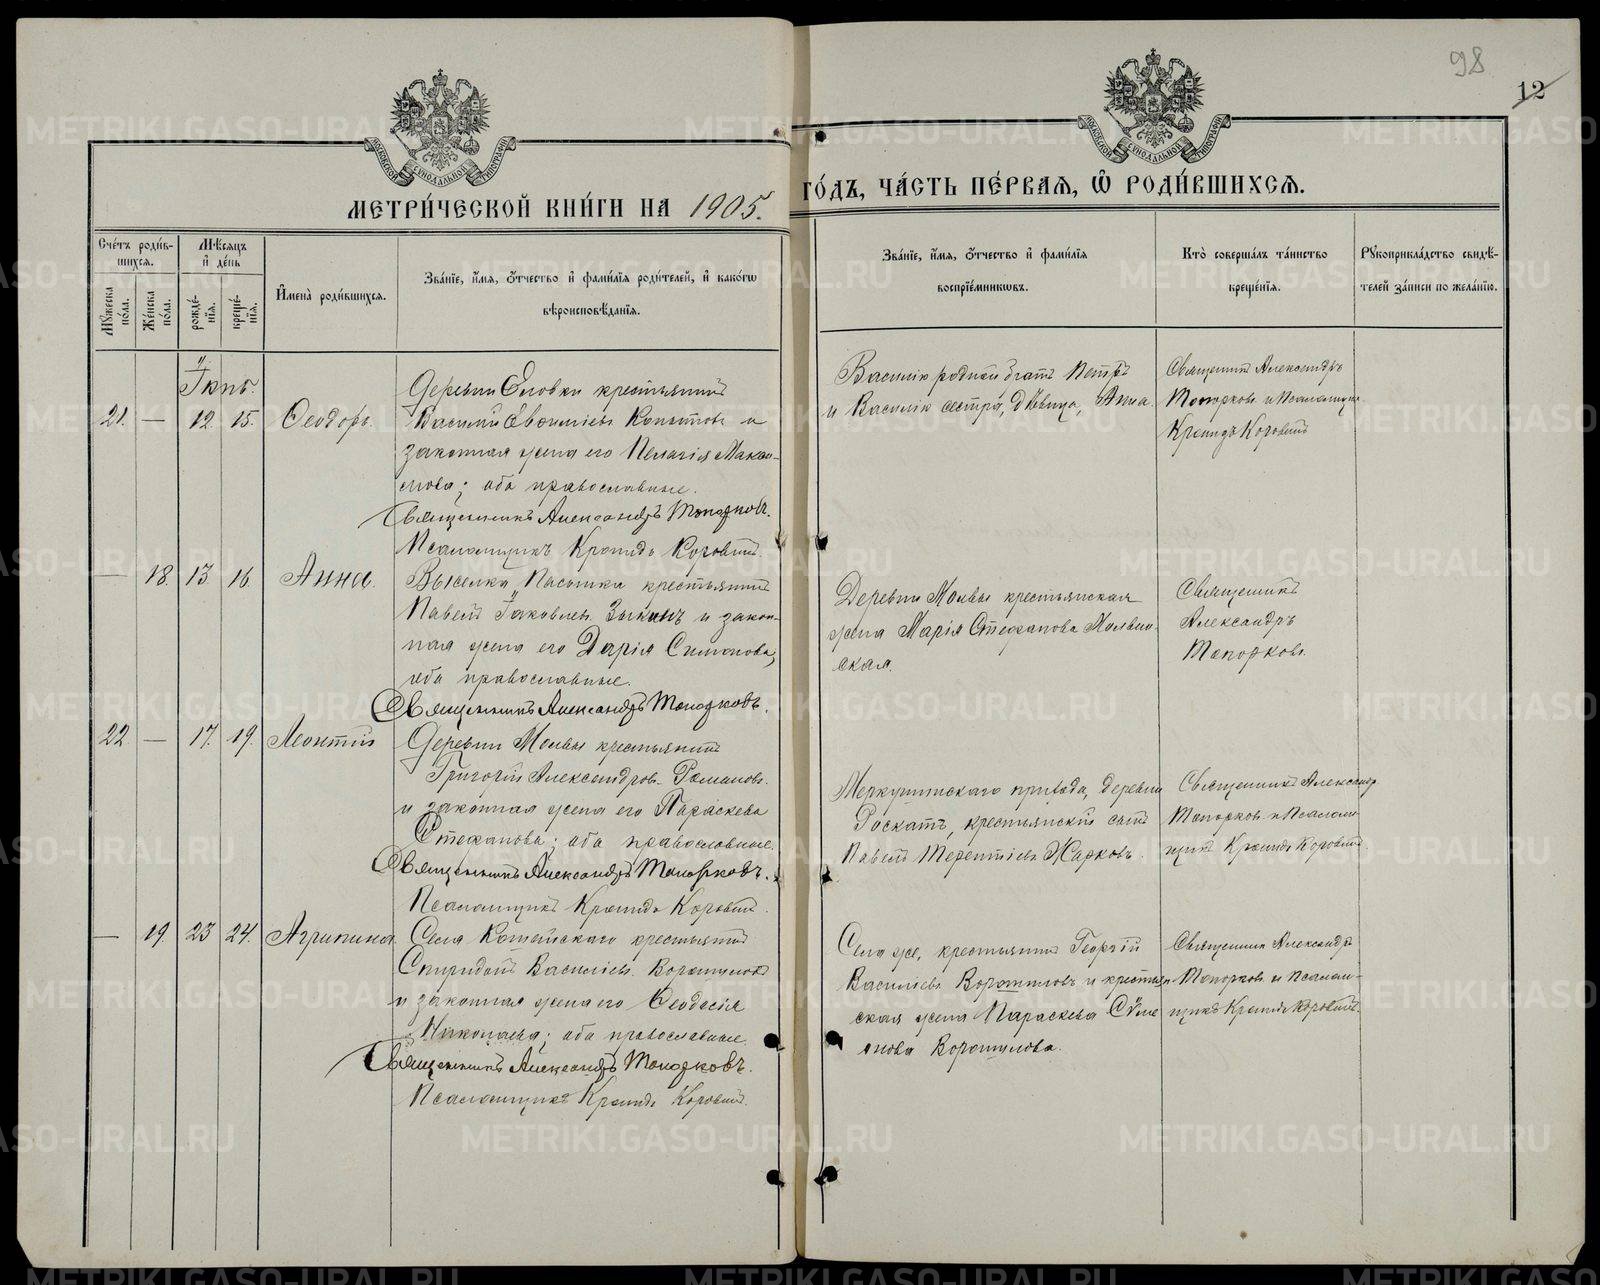 98
12
МОСКОВСКОЙ СѴНОДАЛЬНОЙ ТИПОГРАФІИ
МОСКОВСКОЙ СѴНОДАЛЬНОЙ ТИПОГРАФІИ
МЕТРИ́ЧЕСКОЙ КНИ́ГИ НА 1905. ГО́ДЪ, ЧА́СТЬ ПЕ́РВАЯ, Ѡ҆ РОДИ́ВШИХСЯ.
Сче́тъ роди́в-
шихся.
Мꙋ́жеска по́ла.
Же́нска по́ла.
Мѣ́сяцъ и҆ де́нь
рожде́-нїя.
креще́-нїя.
И҆мена̀ роди́вшихся.
Зва́нїе, и҆́мя, ѻ҆́тчество и҆ фами́лїя роди́телей, и҆ како́гѡ
вѣроисповѣ́данїя.
Зва́нїе, и҆́мя, ѻ҆́тчество и҆ фами́лїя
воспрїе́мникѡвъ.
Кто̀ соверша́лъ та́инство
креще́нїя.
Рꙋкоприкла́дство свидѣ́-
телей за́писи по жела́нїю.
Іюнь.
21. — 12. 15. Ѳеодоръ.
Деревни Еловки крестьянинъ
Василій Евѳиміевъ Копытовъ и
законная жена его Пелагія Макси-
мова; оба православные.
Священникъ Александръ Топорковъ.
Псаломщикъ Кронидъ Коровинъ.
Василія родной братъ Петръ
и Василія сестра, дѣвица, Анна.
Священникъ Александръ
Топорковъ и Псаломщикъ
Кронидъ Коровинъ
— 18. 13 16. Анна.
Выселка крестьянинъ
Павелъ Іаковлевъ Зыкинъ и закон-
ная жена его Дарія Симонова,
оба православные.
Священникъ Александръ Топорковъ.
Деревни Молвы крестьянская
жена Марія Стефанова Молвин-
ская.
Священникъ
Александръ
Топорковъ.
22 — 17. 19. Леонтій
Деревни Молвы крестьянинъ
Григорій Александровъ Романовъ
и законная жена его Параскева
Стефанова; оба православные.
Священникъ Александръ Топорковъ.
Псаломщикъ Кронидъ Коровинъ.
Меркушинскаго прихода, деревни
Роскатъ, крестьянскій сынъ
Павелъ Терентіевъ Жарковъ.
Священникъ Александр
Топорковъ и Псалом-
щикъ Кронидъ Коровинъ
— 19. 23 24. Агрипина
Села крестьянинъ
Спиридонъ Василіевъ Ворошиловъ
и законная жена его Ѳеодосія
Николаева; оба православные.
Священникъ Александръ Топорковъ.
Псаломщикъ Кронидъ Коровинъ.
Села же, крестьянинъ Георгій
Василіевъ Ворошиловъ и крестьян-
ская жена Параскева Симе
онова Ворошилова.
Священник Александръ
Топорковъ и Псалом-
щикъ Кронидъ Коровинъ.
METRIKI.GASO-URAL.RU